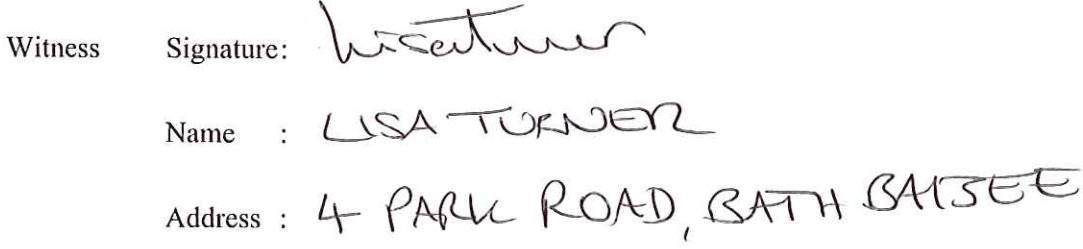 Witness Signature: Lisa Turner
Name : LISA TURNER
Address : 4 PARK ROAD, BATH BA1 3EE